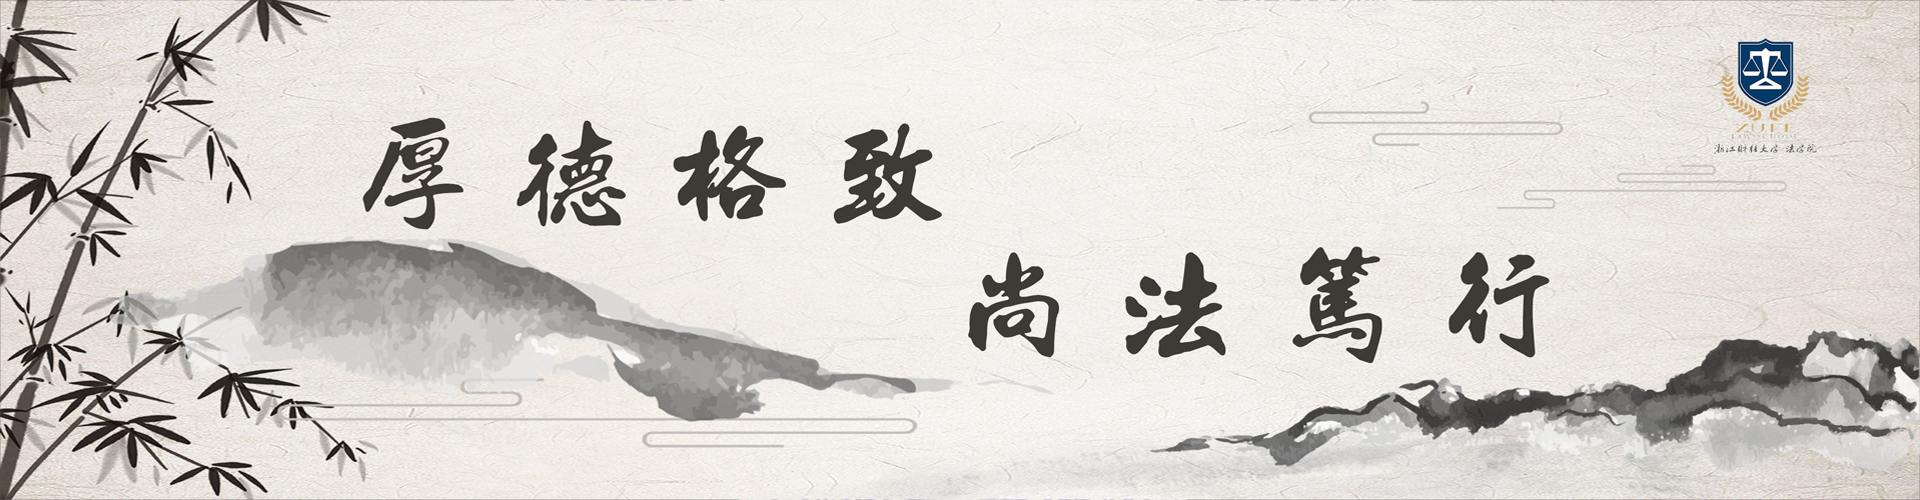 厚德格致
尚法篤行
ZUFE
LAW SCHOOL
浙江财经大学 法学院